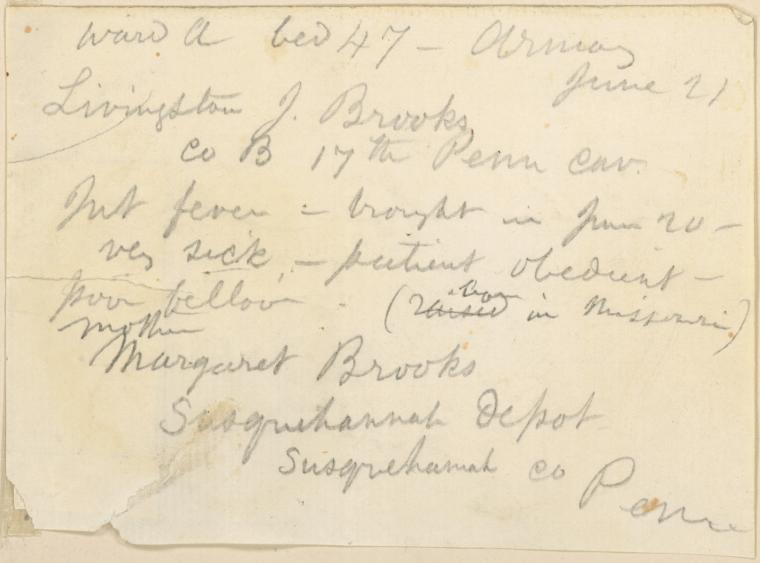 ward A bed 47 – Armory
June 21
Livingston J. Brooks,
co B 17th Penn cav.
fever – brought in June 20 –
very sick, – patient obedient –
poor fellow – (raised born in Missouri)
mother
Margaret Brooks
Susquehannah Depot
Susquehannah co
Penn